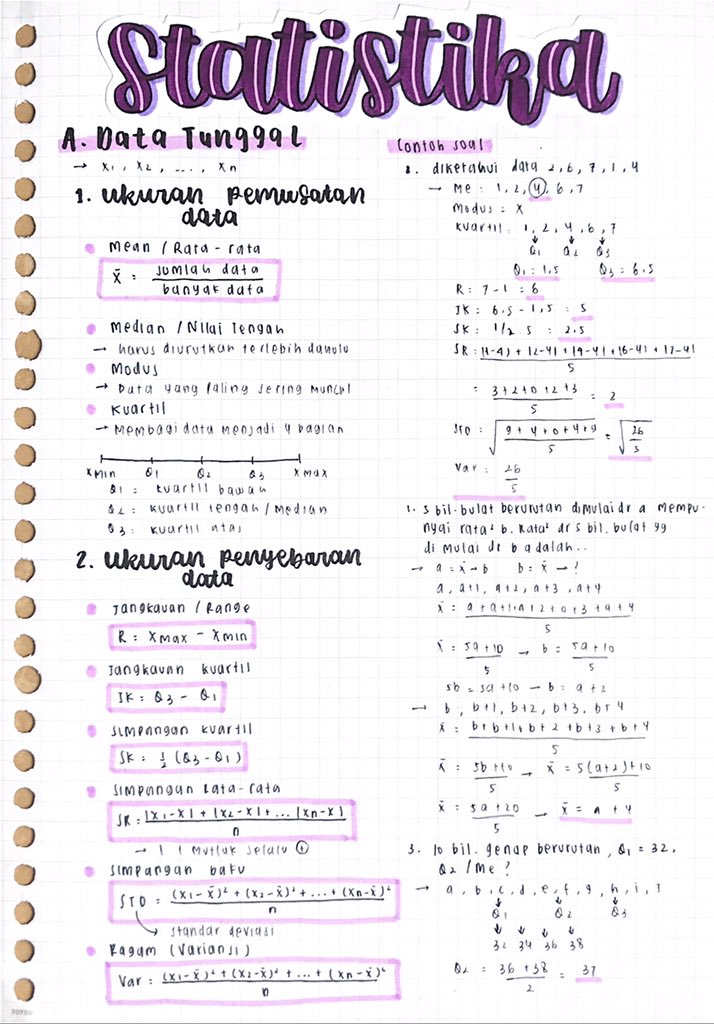 Statistika
A. Data Tunggal
→ x₁, x₂, ..., xₙ
1. Ukuran Pemusatan
data
• Mean / Rata-rata
x̄ = jumlah data / banyak data
• Median / Nilai Tengah
→ harus diurutkan terlebih dahulu
• Modus
→ Data yang paling sering muncul
• Kuartil
→ Membagi data menjadi 4 bagian
xmin Q₁ Q₂ Q₃ xmax
Q₁ = kuartil bawah
Q₂ = kuartil tengah / Median
Q₃ = kuartil atas
2. Ukuran Penyebaran
data
• Jangkauan / Range
R = xmax - xmin
• Jangkauan kuartil
JK = Q₃ - Q₁
• Simpangan kuartil
SK = ½ (Q₃ - Q₁)
• Simpangan Rata-rata
SR = |x₁-x̄| + |x₂-x̄| + ... |xₙ-x̄| / n
→ | | Mutlak selalu ⊕
• Simpangan baku
STD = (x₁-x̄)² + (x₂-x̄)² + ... + (xₙ-x̄)² / n
↳ standar deviasi
• Ragam (Variansi)
Var = (x₁-x̄)² + (x₂-x̄)² + ... + (xₙ-x̄)² / n
Contoh soal
diketahui data 2, 6, 7, 1, 4
→ Me = 1, 2, 4, 6, 7
Modus = x
Kuartil = 1, 2, 4, 6, 7
Q₁ Q₂ Q₃
Q₁ = 1,5 Q₃ = 6,5
R = 7 - 1 = 6
JK = 6,5 - 1,5 = 5
SK = 1/2 . 5 = 2,5
SR = |1-4| + |2-4| + |4-4| + |6-4| + |7-4| / 5
= 3+2+0+2+3 / 5 = 2
STD = √ 9+4+0+4+9 / 5 = √ 26 / 5
Var = 26 / 5
5 bil. bulat berurutan dimulai dr a mempu-
nyai rata² b. Rata² dr 5 bil. bulat yg
di mulai dr b adalah..
→ a = x̄ → b b = x̄ → ?
a, a+1, a+2, a+3, a+4
x̄ = a+a+1+a+2+a+3+a+4 / 5
x̄ = 5a+10 / 5 → b = 5a+10 / 5
5b = 5a+10 → b = a+2
→ b, b+1, b+2, b+3, b+4
x̄ = b+b+1+b+2+b+3+b+4 / 5
x̄ = 5b+10 / 5 → x̄ = 5(a+2)+10 / 5
x̄ = 5a+20 / 5 → x̄ = a+4
3. 10 bil. genap berurutan, Q₁ = 32,
Q₂ / Me ?
→ a, b, c, d, e, f, g, h, i, j
Q₁ Q₂ Q₃
32 34 36 38
Q₂ = 36+38 / 2 = 37